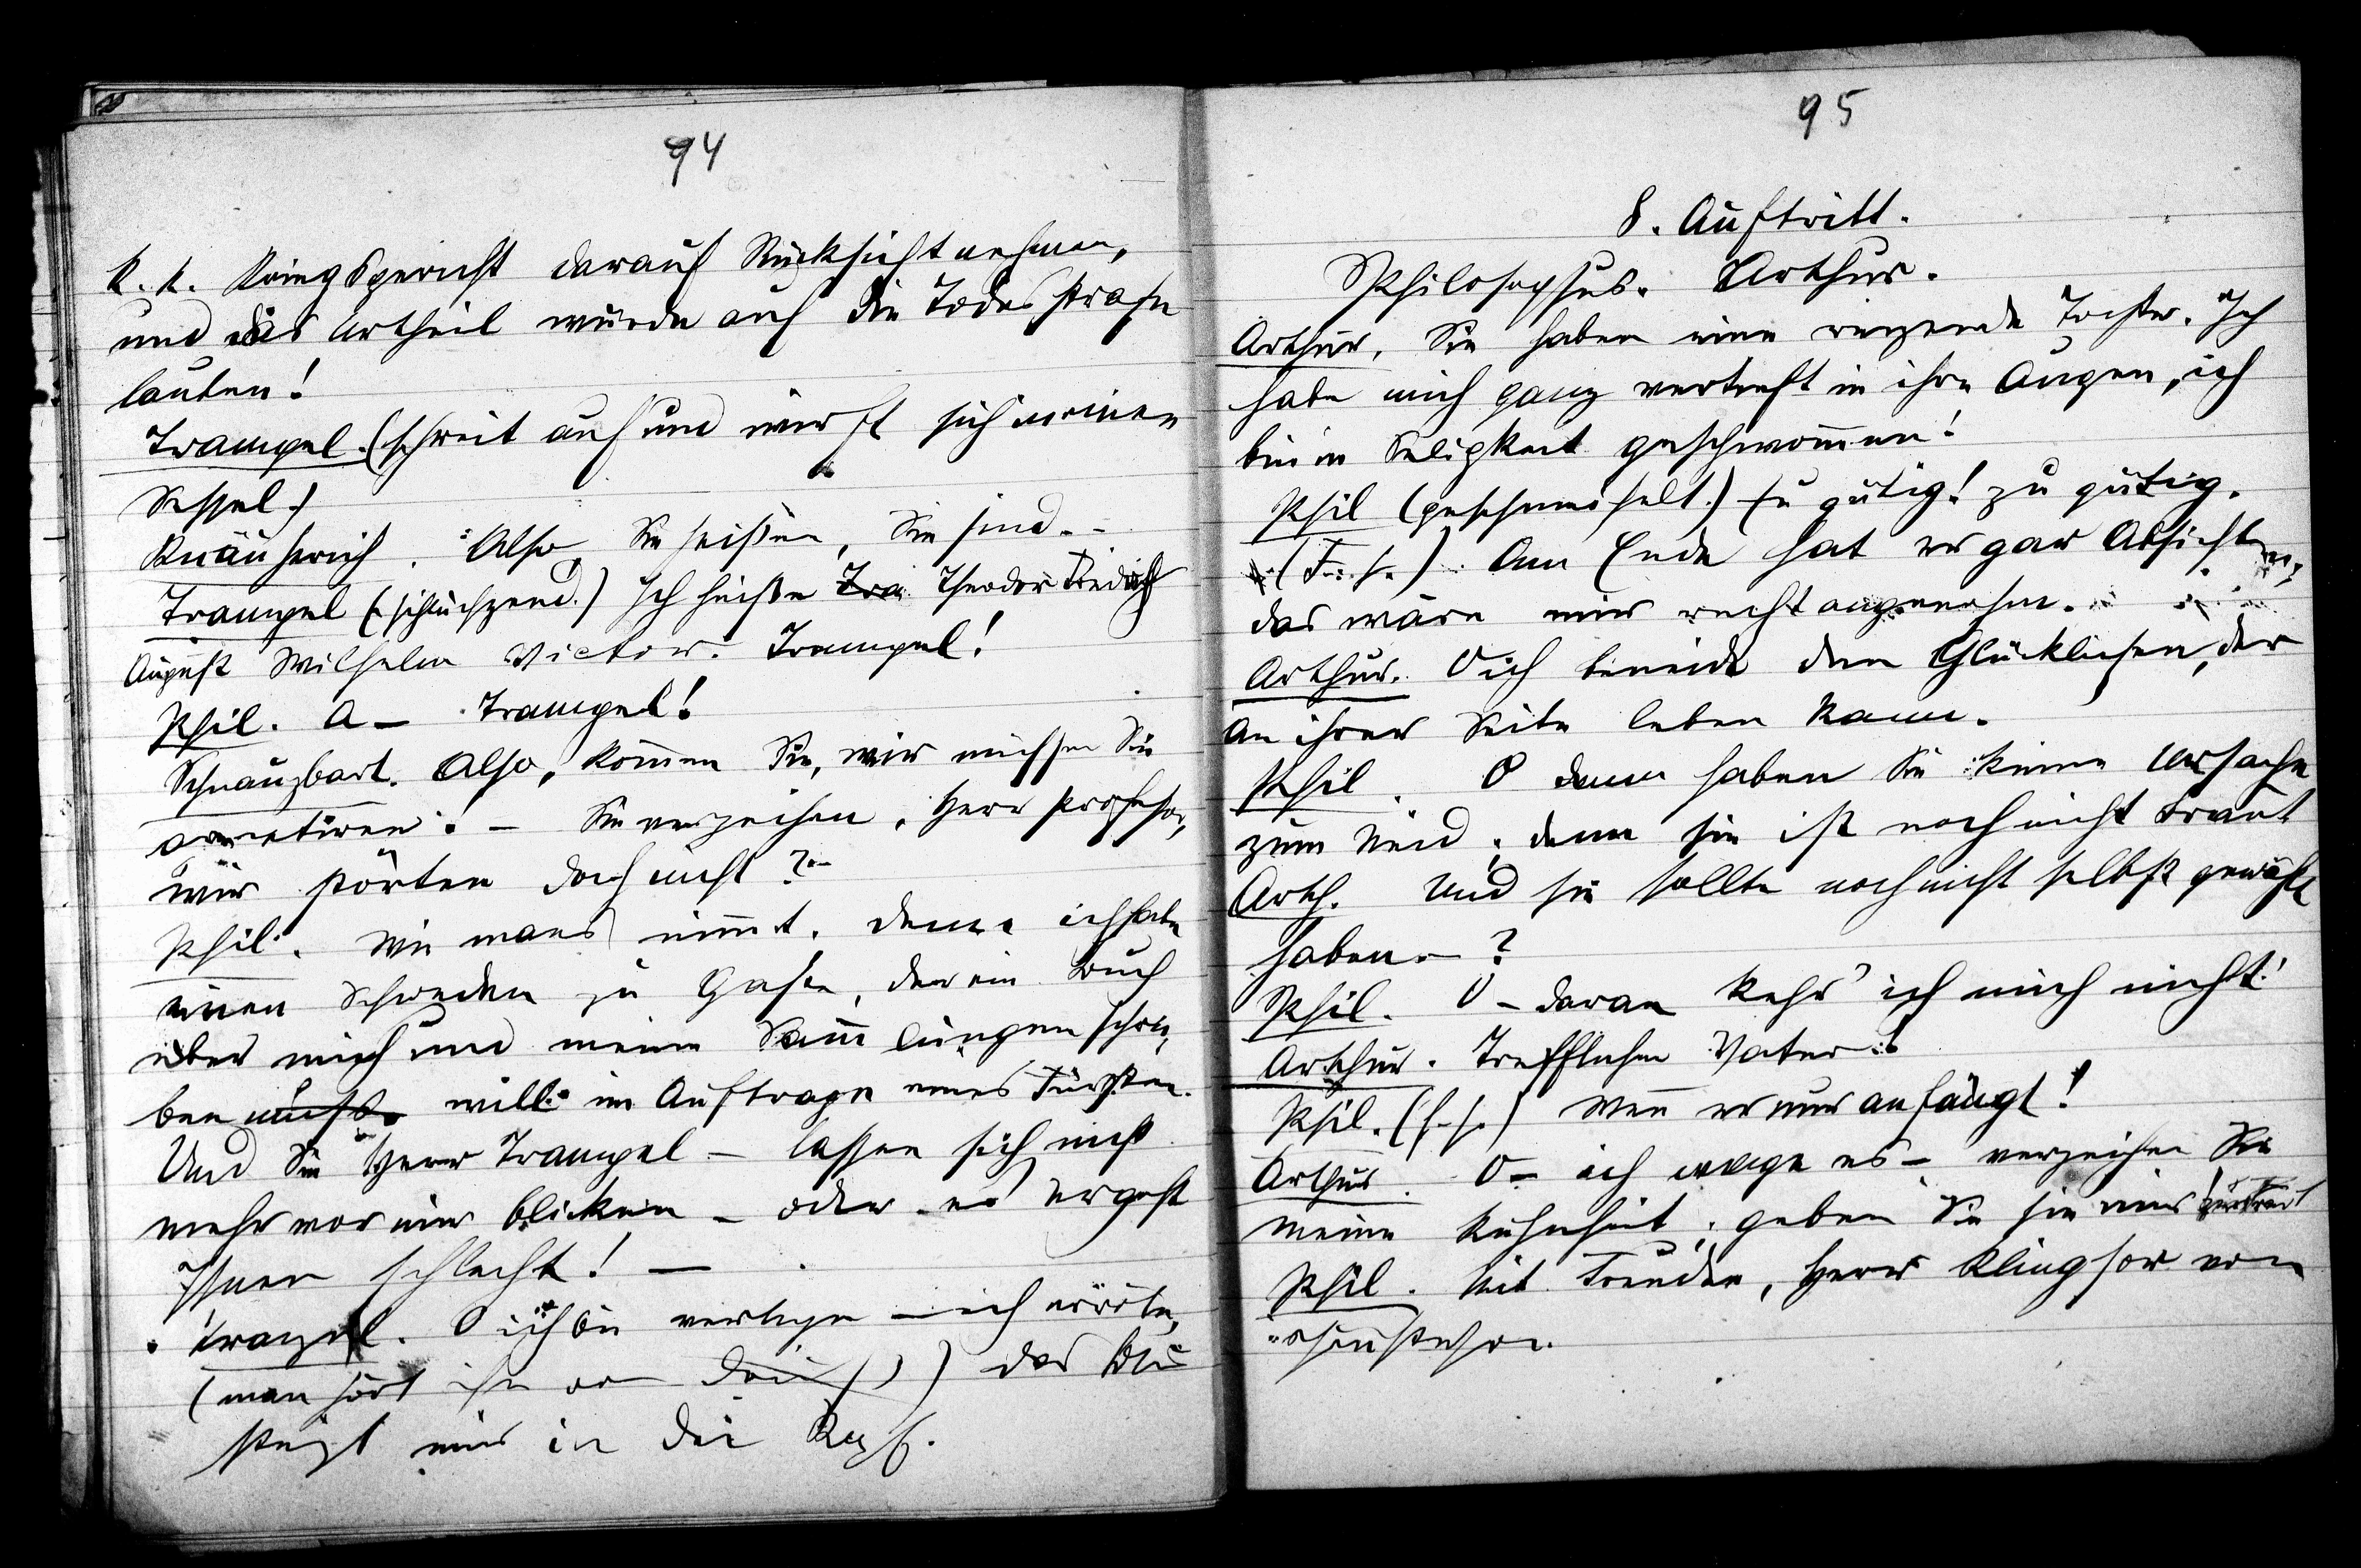 94
k. k. Kriegsgericht darauf Rücksicht nehmen,
und das Urtheil würde auf die Todesstrafe
lauten!
Trampel. (schreit auf und wirft sich in einen
Sessel.)
Knäuserich. Also, Sie heißen, Sie sind --
Trampel (schluchzend.) Ich heiße Tra Theodor Friedrich
August Wilhelm Victor. Trampel!
Phil. A – Trampel!
Schnauzbart. Also, kommen Sie, wir müssen Sie
arretiren! – Sie verzeihen, Herr Professor,
wir störten doch nicht? –
Phil. Wie mans nimmt. Denn ich habe
einen Schweden zu Gaste, der ein Buch
über mich und meine Sammlungen schrei-
ben will im Auftrage eines Fürsten.
Und Sie Herr Trampel – lassen sich nicht
mehr vor mir blicken – oder es ergeht
Ihnen schlecht! –
Trampel. O ich bin verlegen – ich erröte,
(man hört ihn von) das Blu
steigt mir in die Kopf.
95
8. Auftritt.
Philosophus. Arthur.
Arthur. Sie haben eine reizende Tochter. Ich
habe mich ganz vertieft in ihre Augen, ich
bin in Seligkeit geschwommen!
Phil (geschmeichelt.) Zu gütig! zu gütig.
(F. s.) Am Ende hat er gar Absichten,
das wäre mir recht angenehm.
Arthur. O ich beneide den Glücklichen, der
an ihrer Seite leben kann.
Phil. O dann haben Sie keine Ursache
zum Neid; denn sie ist noch nicht Braut
Arth. Und sie sollte noch nicht selbst gewählt
haben – ?
Phil. O – daran kehr' ich mich nicht!
Arthur. Trefflicher Vater!
Phil. (f. s.) Wenn er nur anfängt!
Arthur. O – ich wage es – verzeihen Sie
meine Kühnheit; geben Sie sie mir zur Braut
Phil. Mit Freuden, Herr Klingsor von